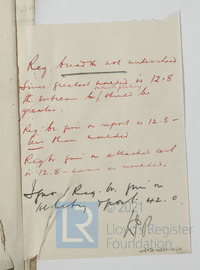 Reg. breadth not understood
Since greatest moulded is 12.8
the extreme b. should be
greater.
Reg. br. given on report is 12.3 -
less than moulded
Reg. br. given on attached cert
is 12.8 - same as moulded.
Reg. br. given on
report 42.0
© 2021
Lloyd's Register
Foundation